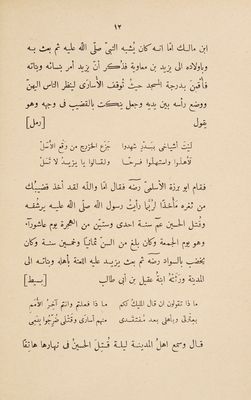 ١٣
ابن مالك اما انه كان يُشبه النبيّ صلّى الله عليه ثم بعث به
وباولاده الى يزيد بن معاوية فذُكر أن يزيد أمر بنسائه وبناته
فأقمن بدرجة المسجد حيث تُوقف الأسارى لينظر الناس اليهنّ
ووضع رأسه بين يديه وجعل ينكت بالقضيب فى وجهه وهو
يقول [رمل]
ليت أشياخى ببدر شهدوا جزع الخزرج من وقع الأسل
لأهلّوا واستهلّوا فرحا ولقالوا يا يزيد لا تسل
فقام ابو برزة الأسلمىّ رضّه فقال امّا والله لقد أخذ قضيبك
من ثغره مأخذا لربّما رأيت رسول الله صلّى الله عليه يرشفه
وقُتل الحسين عمّ سنة احدى وستّين من الهجرة يوم عاشوراء
وهو يوم الجمعة وكان بلغ من السنّ ثمانيا وخمسين سنة وكان
يخضب بالسواد رضّه ثم بعث يزيد عليه اللعنة بأهله وبناته الى
المدينة ابنة عقيل بن أبى طالب [بسيط]
ما ذا تقولون ان قال المليك لكم ما ذا فعلتم وأنتم آخر الأمم
بعترتى وبأهلى بعد مفتقدى منهم أسارى وقتلى ضرّجوا بدمى
قال وسمع أهل المدينة ليلة قُتل الحسين فى نهارها هاتفا